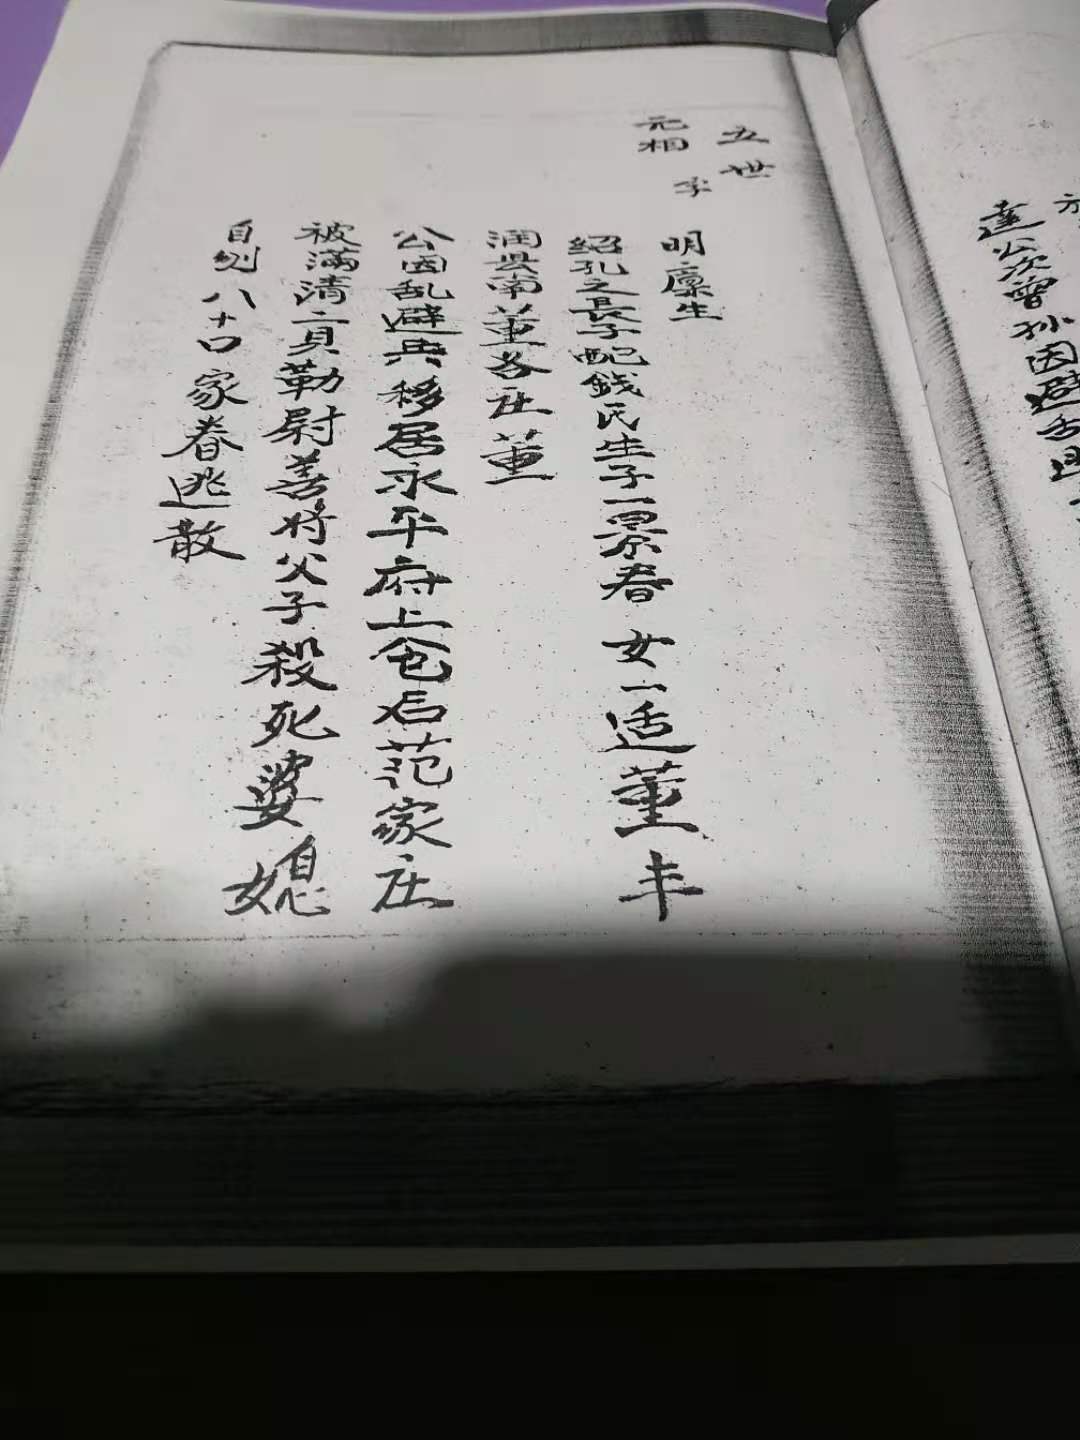 五世
元相 字
明廩生
紹孔之長子配錢氏生子一景春 女一适董丰
润县南董各庄董
公因乱避兵移居永平府上仓后范家庄
被滿清二貝勒尉善將父子殺死婆媳
自刎八十口家眷逃散
達公次曾孫因避